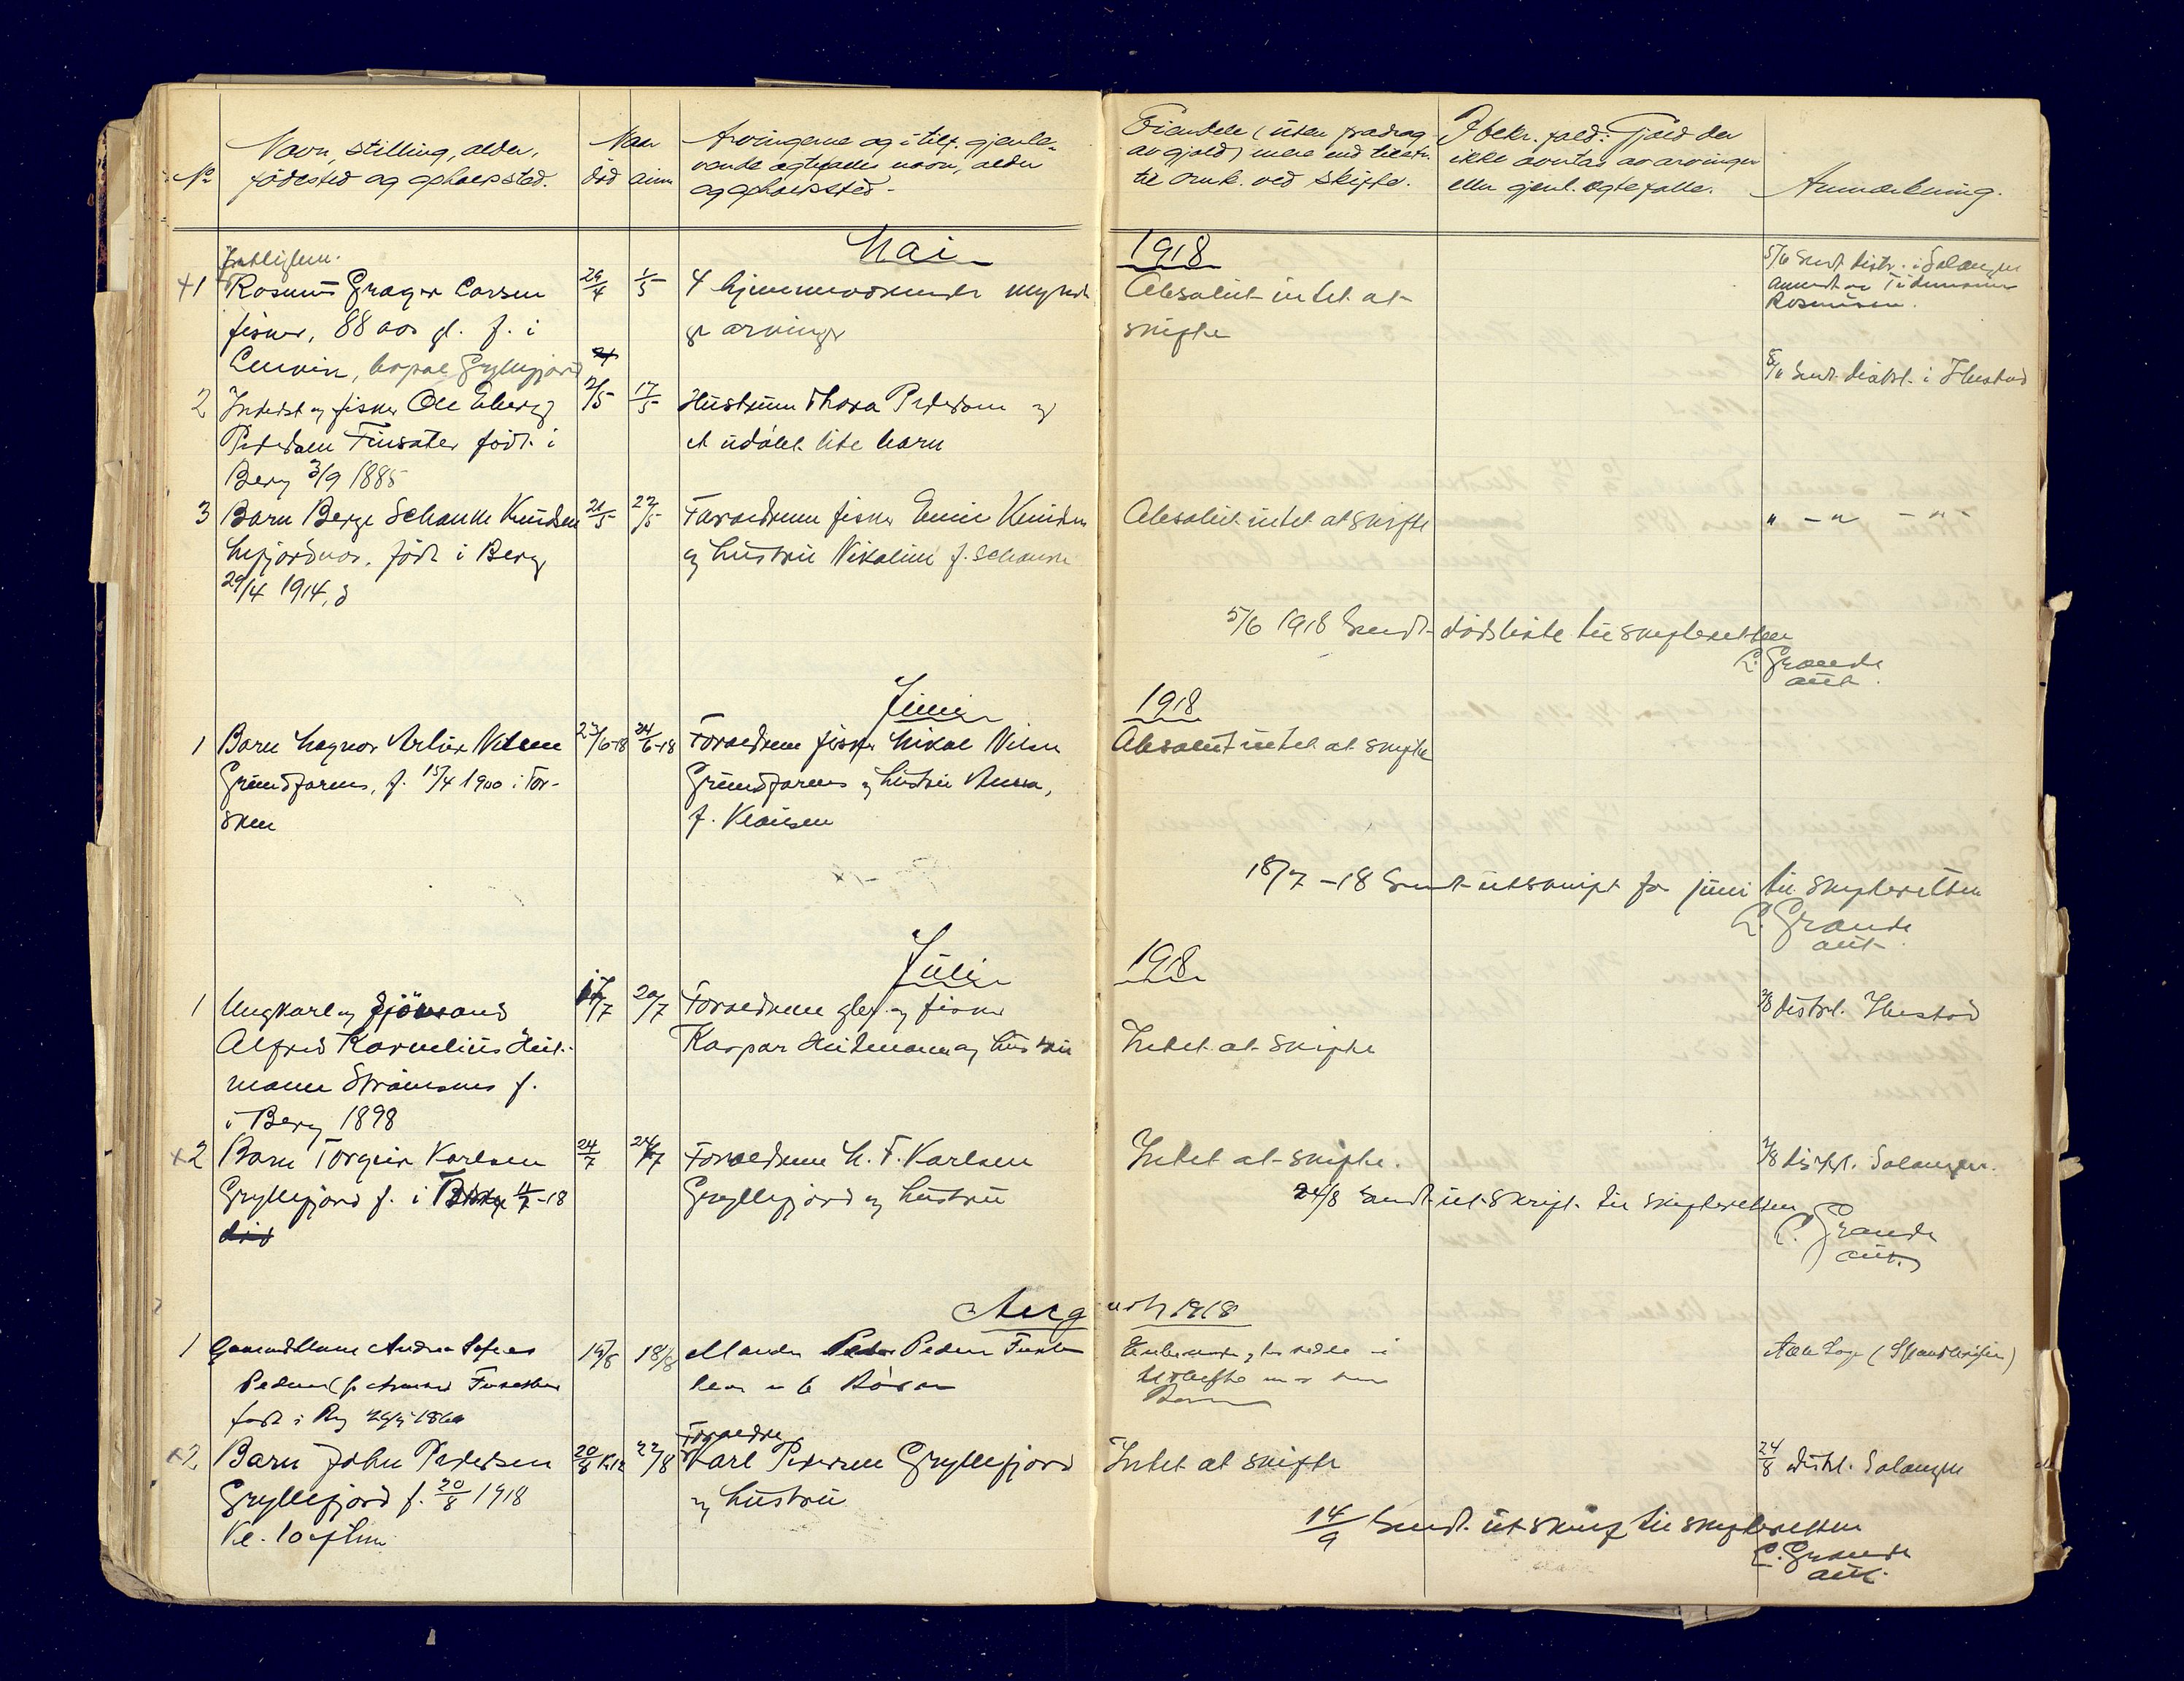 No
Navn, stilling, alder,
fødested og opholdssted.
Naar
død anm
Arvingerne og i tilf. gjenle-
vende egtefælles navn, alder
og opholdssted.
Eiendele (uten fradrag
av gjæld) mere end tilstr.
til omk. ved skifte.
I bekr. fald: Gjæld der
ikke avertas av arvinger
eller gjenl. egtefælle.
Anmærkning.
Mai 1918
+1 Rasmus Larsen
fisker, 88 aar gl. f. i
bopæl Gryllefjord
29/4
1/5
4 hjemmeværende myndi
ge arvinger
Absolut intet at
skifte
5/6 Sendt distr. i Salangen
anmeldt av
Rasmusen.
2 Inderst og fisker Ole
Pedersen Finsæter født i
Berg 3/9 1885
2/5
17/5
Hustruen Thora Pedersen og
et udøbt lite barn
8/6 Sendt distrl. i Ibestad
3 Barn Berge Schanke Knudsen
født i Berg
29/4 1914,
21/5
22/5
Forældrene fisker Emil Knudsen
og hustru Nikoline f. Schanke
Absolut intet at skifte
" - " - " -
5/6 1918 Sendt dødsliste til skifteretten
L. Grande
aut.
Juni 1918
1 Barn Magnor Artur Nilsen
Grundfarnes, f. 15/4 1900 i Tor-
sken
23/6-18
24/6-18
Forældrene fisker Mikal Nilsen
Grundfarnes og hustru Anna,
f. Klausen
Absolut intet at skifte
18/7-18 Sendt utskrift for juni til skifteretten
L. Grande
aut.
Juli 1918
1 Ungkarl og sjømand
Alfred Kornelius Heit-
mann Strømsnes f.
i Berg 1898
17/7
20/7
Forældrene og fisker
Kaspar Heitmann og hustru
Intet at skifte
2/8 distrl. Ibestad
+2 Barn Torgeir Karlsen
Gryllefjord f. i 11/7-18
24/7
24/7
Forældrene H. F. Karlsen
Gryllefjord og hustru
Intet at skifte.
2/8 distrl. Salangen.
24/8 Sendt utskrift til skifteretten
L. Grande
aut.
August 1918
1 Andrea
Pedersen
født i Berg
15/8
18/8
Manden Peder Pedersen
6 Børn
+2 Barn John Pedersen
Gryllefjord f. 20/8 1918
Kl. 10 efthm.
20/8 Kl 12
22/8
Forældre
Karl Pedersen Gryllefjord
og hustru
Intet at skifte
24/8 distrl. Salangen
14/9 Sendt utskrift til skifteretten
L. Grande
aut.